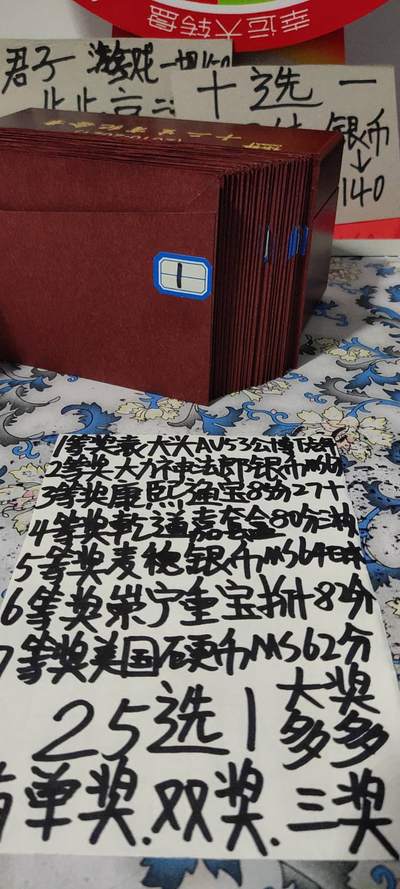 幸运大转盘
君子 游戏一切
十选一
银币
140
十二生肖纪念
1
1等奖袁大头AU53公博
2等奖大力神法郎银币MS6
3等奖康熙通宝85分27十
4等奖乾道嘉套盒80分
5等奖麦穗银币MS64
6等奖崇宁重宝折十82分
7等奖美国硬币MS62分
25选1 大奖多多
单奖.双奖.三奖